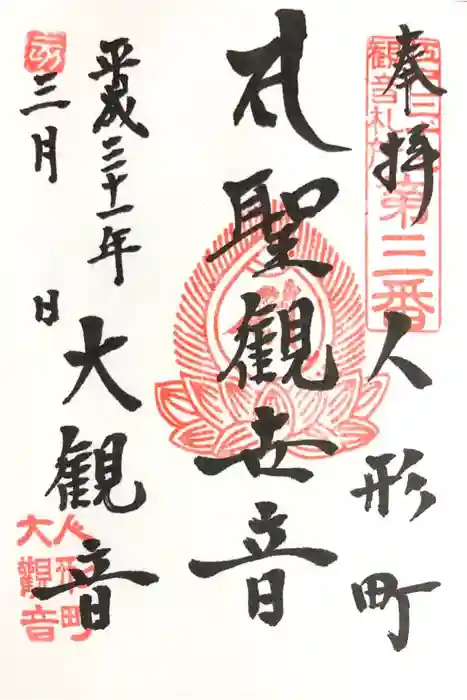 奉拝
人形町
觀音札所
第三番
聖観世音
平成三十一年
三月 日
大観音
人形町
大觀音